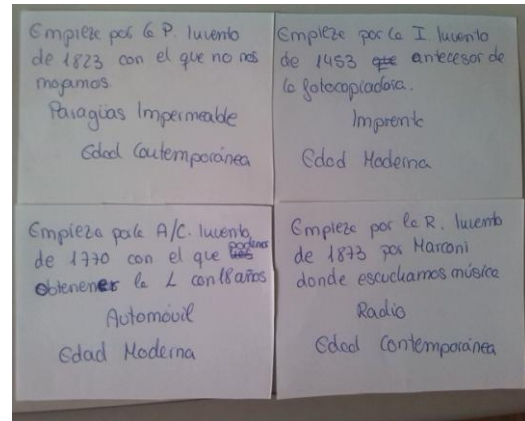 Empieze por la P. Invento
de 1823 con el que no nos
mojamos.
Paragüas Impermeable
Edad Contemporánea
Empieze por la I. Invento
de 1453 que antecesor de
la fotocopiadora.
Imprenta
Edad Moderna
Empieza por la A/C. Invento
de 1770 con el que podemos
obtener la L con 18 años
Automóvil
Edad Moderna
Empieze por la R. Invento
de 1873 por Marconi
donde escuchamos música
Radio
Edad Contemporánea